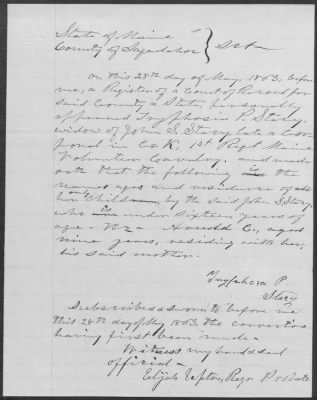 State of Maine
County of Sagadahoc } Sct
On this 28th day of May, 1863, before
me, a Register of a Court of Record for
said County & State, personally
appeared Tryphosia P. Stacy,
widow of John S. Stacy late a Cor-
poral in Co K, 1st Regt Maine
Volunteer Cavalry, and made
oath that the following is the
names ages and residence of all
her only Child, by the said John S. Stacy,
who is under sixteen years of
age Viz - Arnold C., aged
nine years, residing with her,
his said mother.
P.
Stacy
Subscribed & sworn to before me
this 28th day of May 1863, the corrections
having first been made.
Witness my hand & seal
official -
Elijah Upton, Regr Probate